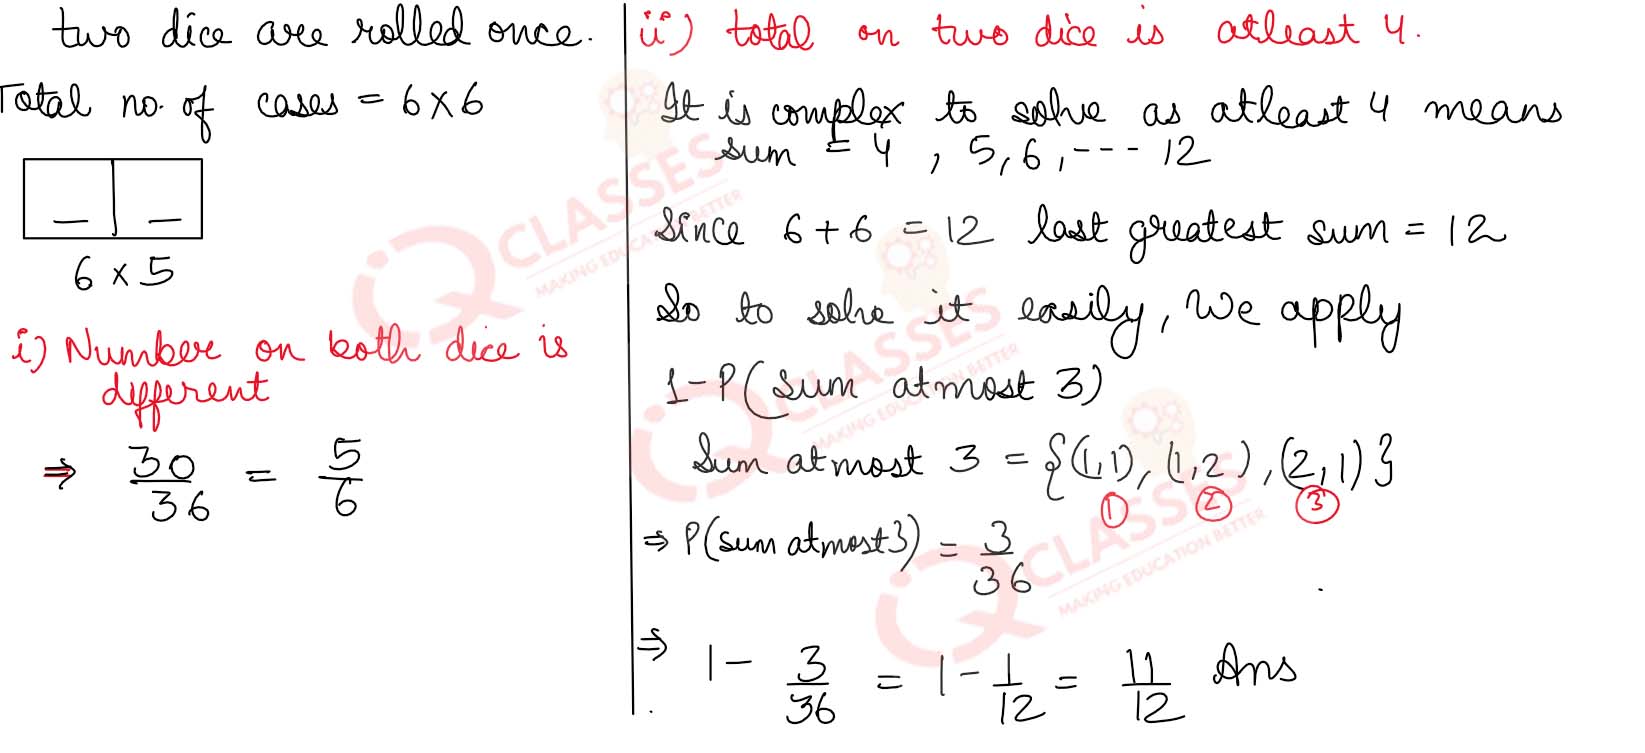 two dice are rolled once.
Total no. of cases = 6×6
6 × 5
i) Number on both dice is
different
⇒ 30/36 = 5/6
ii) total on two dice is atleast 4.
It is complex to solve as atleast 4 means
sum = 4, 5, 6, --- 12
Since 6+6 = 12 last greatest sum = 12
So to solve it easily, we apply
1-P(sum atmost 3)
Sum atmost 3 = {(1,1), (1,2), (2,1)}
① ② ③
⇒ P(sum atmost 3) = 3/36
⇒ 1 - 3/36 = 1 - 1/12 = 11/12 Ans
IQ CLASSES
MAKING EDUCATION BETTER
IQ CLASSES
MAKING EDUCATION BETTER
IQ CLASSES
MAKING EDUCATION BETTER